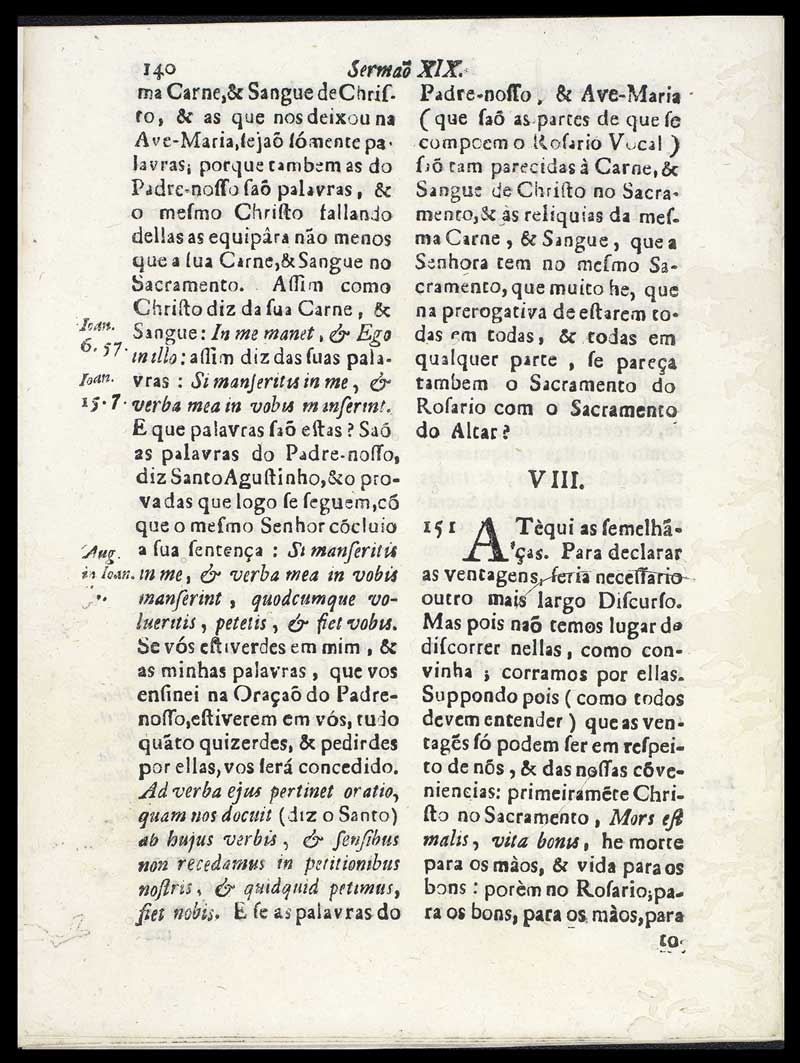 140 Sermaõ XIX.
ma Carne, & Sangue de Chriſ-
to, & as que nos deixou na
Ave-Maria, ſejaõ ſómente pa-
lavras; porque tambem as do
Padre-noſſo ſaõ palavras, &
o meſmo Chriſto fallando
dellas as equipâra não menos
que a ſua Carne, & Sangue no
Sacramento. Aſſim como
Chriſto diz da ſua Carne, &
Ioan.
6. 57.
Sangue: In me manet, & Ego
in illo: aſſim diz das ſuas pala-
Ioan.
15. 7.
vras: Si manſeritis in me, &
verba mea in vobis manſerint.
E que palavras ſaõ eſtas? Saó
as palavras do Padre-noſſo,
diz Santo Aguſtinho, & o pro-
va das que logo ſe ſeguem, cõ
que o meſmo Senhor cõcluio
Aug.
in Ioan.
a ſua ſentença: Si manſeritis
in me, & verba mea in vobis
manſerint, quodcumque vo-
lueritis, petetis, & fiet vobis.
Se vós eſtiverdes em mim, &
as minhas palavras, que vos
enſinei na Oraçaõ do Padre-
noſſo, eſtiverem em vós, tudo
quãto quizerdes, & pedirdes
por ellas, vos ſerá concedido.
Ad verba ejus pertinet oratio,
quam nos docuit (diz o Santo)
ab hujus verbis, & ſenſibus
non recedamus in petitionibus
noſtris, & quidquid petimus,
fiet nobis. E ſe as palavras do
Padre-noſſo, & Ave-Maria
(que ſaõ as partes de que ſe
compoem o Roſario Vocal)
ſaõ tam parecidas à Carne, &
Sangue de Chriſto no Sacra-
mento, & às reliquias da meſ-
ma Carne, & Sangue, que a
Senhora tem no meſmo Sa-
cramento, que muito he, que
na prerogativa de eſtarem to-
das em todas, & todas em
qualquer parte, ſe pareça
tambem o Sacramento do
Roſario com o Sacramento
do Altar?
VIII.
151 ATèqui as ſemelhã-
ças. Para declarar
as ventagens, ſeria neceſſario
outro mais largo Diſcurſo.
Mas pois naõ temos lugar de
diſcorrer nellas, como con-
vinha; corramos por ellas.
Suppondo pois (como todos
devem entender) que as ven-
tagẽs ſó podem ſer em reſpei-
to de nós, & das noſſas cõve-
niencias: primeiramẽte Chri-
ſto no Sacramento, Mors eſt
malis, vita bonis, he morte
para os màos, & vida para os
bons: porèm no Roſario; pa-
ra os bons, para os màos, para
to-